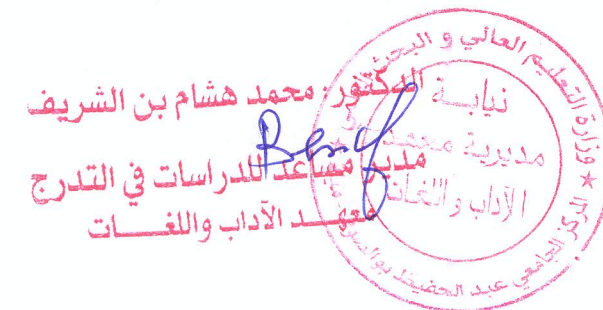 الدكتور: محمد هشام بن الشريف
مدير مساعد للدراسات في التدرج
معهد الآداب واللغات
وزارة التعليم العالي و البحث
المركز الجامعي عبد الحفيظ بوالصوف
نيابة
مديرية معهد
الآداب و اللغات